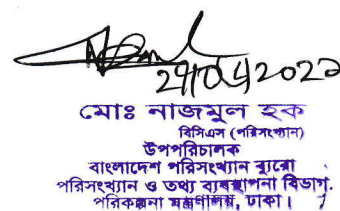 মোঃ নাজমুল হক
বিসিএস (পরিসংখ্যান)
উপপরিচালক
বাংলাদেশ পরিসংখ্যান ব্যুরো
পরিসংখ্যান ও তথ্য ব্যবস্থাপনা বিভাগ.
পরিকল্পনা মন্ত্রণালয়, ঢাকা।